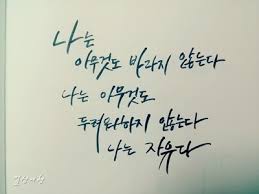 나는
아무것도 바라지 않는다
나는 아무것도
두려워하지 않는다
나는 자유다